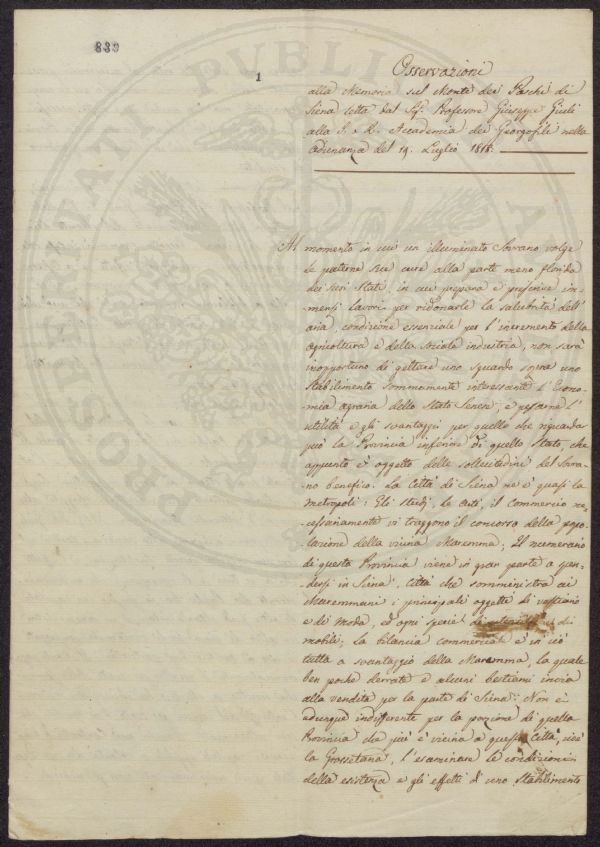 839
1
Osservazioni
alla Memoria sul Monte dei Paschi di
Siena letta dal Sig. Professore Giuseppe Giuli
alla I. e R. Accademia dei Georgofili nella
Adunanza del 19. Luglio 1818.
Al momento in cui un illuminato Sovrano volge
le paterne sue cure alla parte meno florida
dei suoi Stati, in cui prepara e prescrive im-
mensi lavori per ridonarle la salubrità dell'
aria, condizione essenziale per l'incremento della
agricoltura e della sociale industria, non sarà
inopportuno di gettare uno sguardo sopra uno
Stabilimento sommamente interessante l'Econo-
mia agraria dello Stato Senese, e pesarne l'
utilità e gli svantaggi per quello che riguarda
più la Provincia inferiore di quello Stato, che
appunto è oggetto delle sollecitudini del Sovra-
no benefico. La Città di Siena ne è quasi la
metropoli: Gli studj, le arti, il commercio ne-
cessariamente vi traggono il concorso della popo-
lazione della vicina Maremma; Il numerario
di questa Provincia viene in gran parte a spen-
dersi in Siena, Città che somministra ai
Maremmani i principali oggetti di vestiario
e di moda, ed ogni specie di
mobili; la bilancia commerciale è in ciò
tutta a svantaggio della Maremma, la quale
ben poche derrate e alcuni bestiami invia
alla vendita per la parte di Siena. Non è
adunque indifferente per la porzione di quella
Provincia che più è vicina a questa Città, cioè
la Grossetana, l'esaminare le condizioni
della esistenza e gli effetti d'uno Stabilimento
PROSPERITATI PUBLICAE